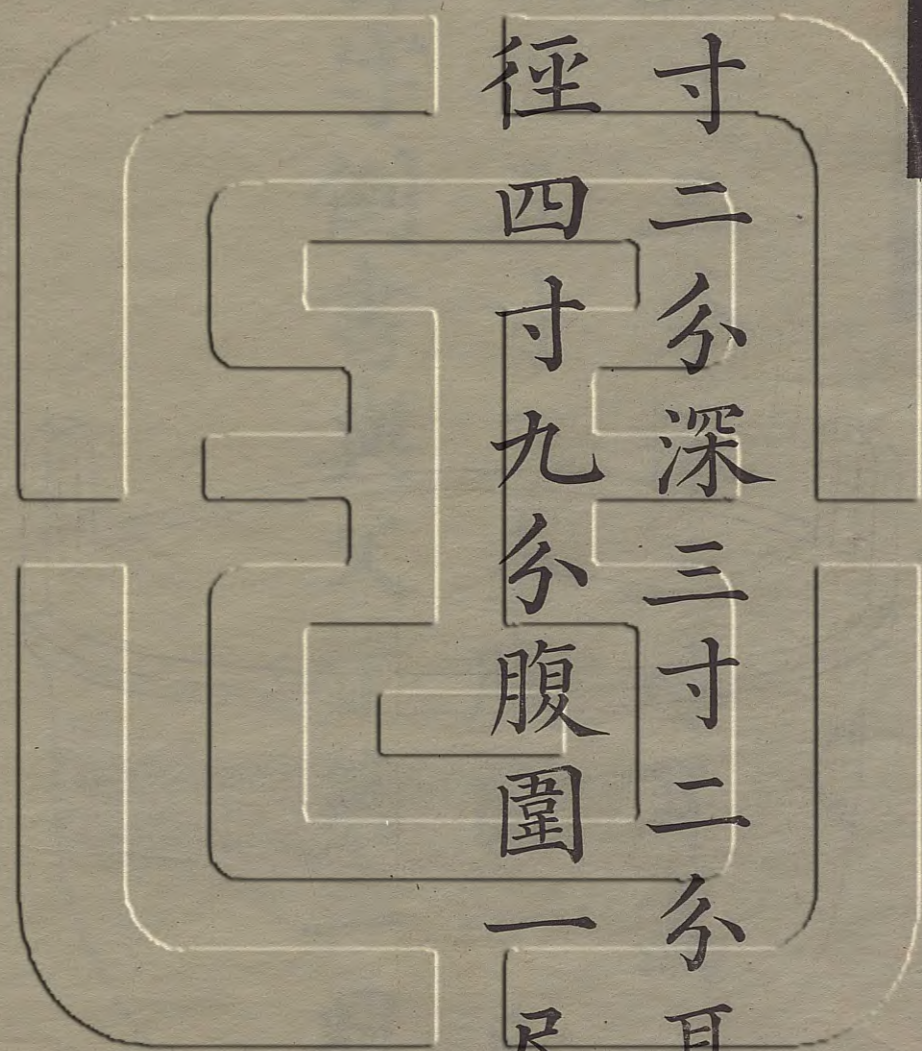 寸二分深三寸二分耳
徑四寸九分腹圍一尺